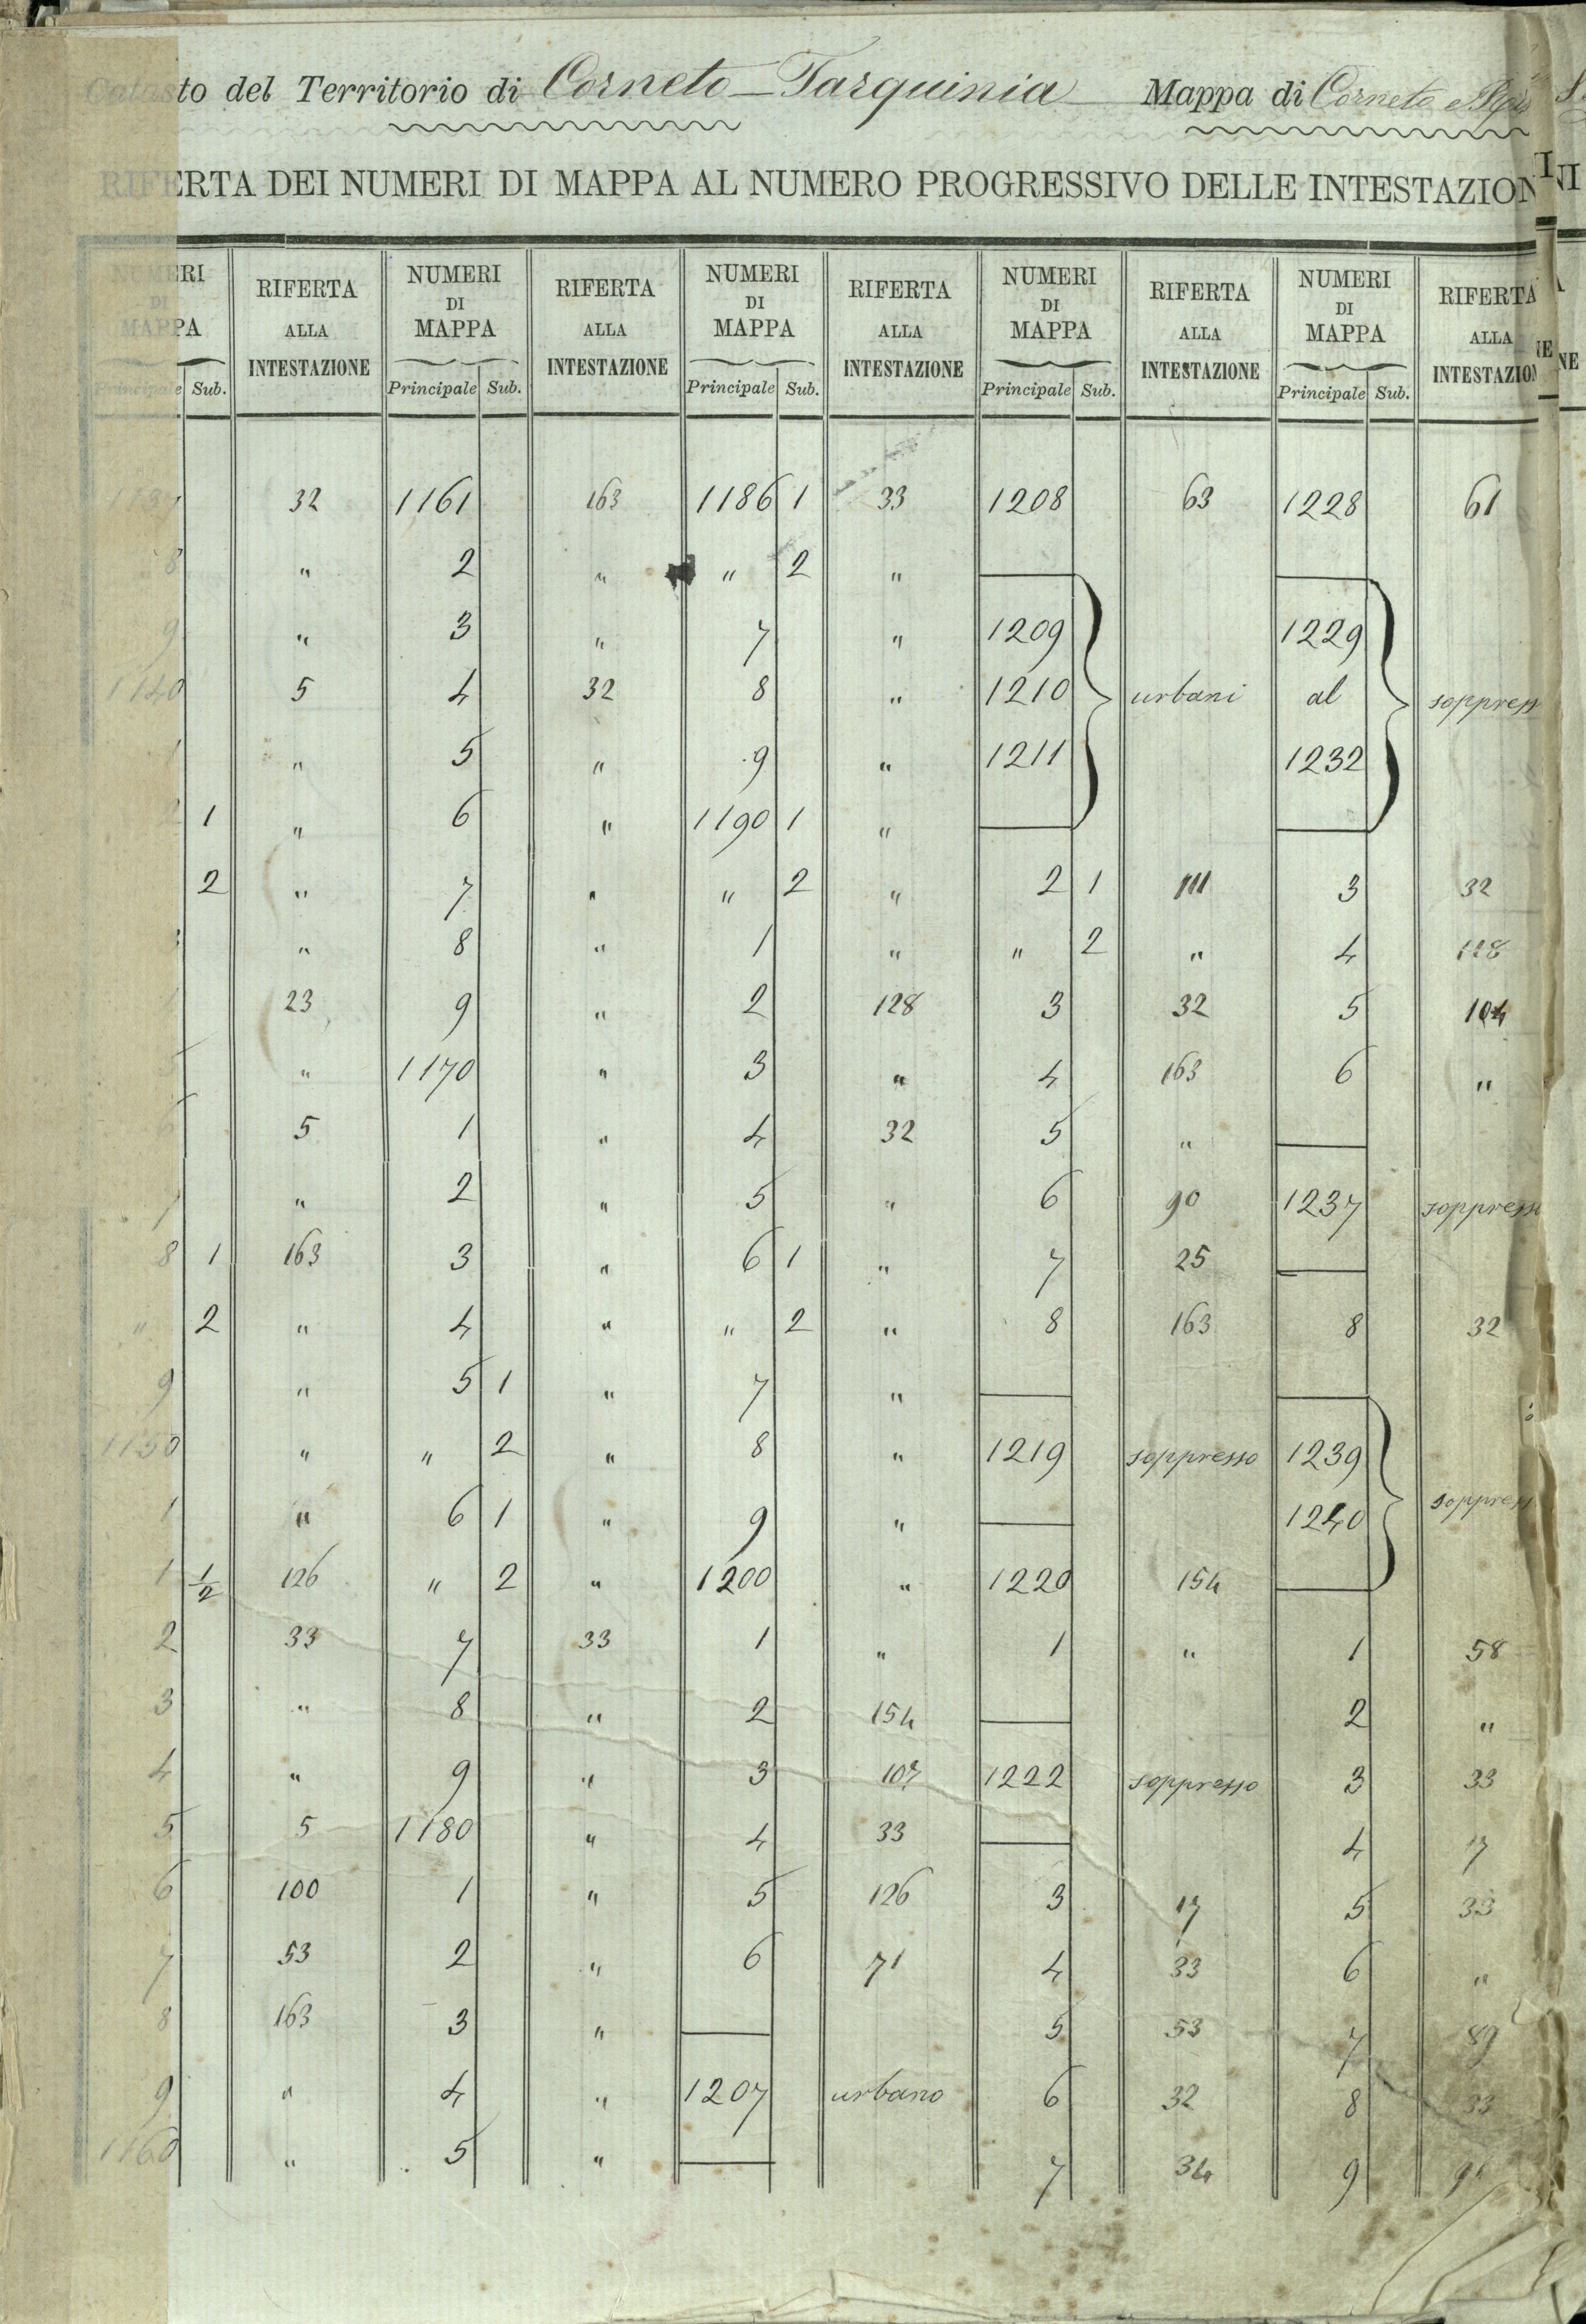 Catasto del Territorio di Corneto-Tarquinia Mappa di Corneto
RIFERTA DEI NUMERI DI MAPPA AL NUMERO PROGRESSIVO DELLE INTESTAZIONI
NUMERI RIFERTA NUMERI RIFERTA NUMERI RIFERTA NUMERI RIFERTA NUMERI RIFERTA
DI ALLA DI ALLA DI ALLA DI ALLA DI ALLA
MAPPA INTESTAZIONE MAPPA INTESTAZIONE MAPPA INTESTAZIONE MAPPA INTESTAZIONE MAPPA INTESTAZION
Principale Sub. Principale Sub. Principale Sub. Principale Sub. Principale Sub.
1137 32 1161 163 1186 1 33 1208 63 1228 61
8 " 2 " " 2 "
9 " 3 " 7 " 1209 1229
1140 5 4 32 8 " 1210 urbani al soppress
1 " 5 " 9 " 1211 1232
2 1 " 6 " 1190 1 "
2 " 7 " " 2 " 2 1 111 3 32
3 " 8 " 1 " " 2 " 4 128
23 9 " 2 128 3 32 5 104
5 " 1170 " 3 " 4 163 6 "
6 5 1 " 4 32 5 "
7 " 2 " 5 " 6 90 1237 soppress
8 1 163 3 " 6 1 " 7 25
" 2 " 4 " " 2 " 8 163 8 32
9 " 5 1 " 7 "
1150 " " 2 " 8 " 1219 soppresso 1239
1 " 6 1 " 9 " 1240 soppress
1 1/2 126 " 2 " 1200 " 1220 154
2 33 7 33 1 " 1 " 1 58
3 " 8 " 2 154 2 "
4 " 9 " 3 107 1222 soppresso 3 33
5 5 1180 " 4 33 4 17
6 100 1 " 5 126 3 17 5 33
7 53 2 " 6 71 4 33 6 "
8 163 3 " 5 53 7 89
9 " 4 " 1207 urbano 6 32 8 33
1160 " 5 " 7 34 9